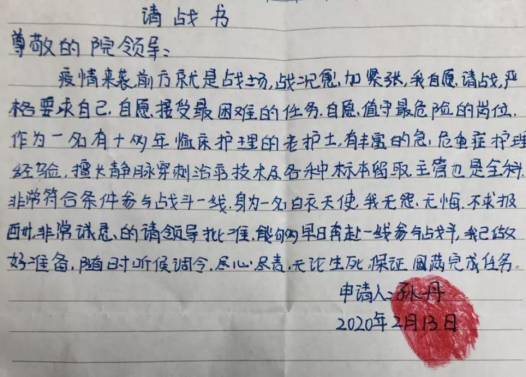 请战书
尊敬的院领导:
疫情来袭前方就是战场,战况愈加紧张,我自愿请战,严
格要求自己,自愿接受最困难的任务,自愿值守最危险的岗位,
作为一名有十两年临床护理的老护士,有丰富的急、危重症护理
经验,擅长静脉穿刺治疗技术及各种标本留取主管也是全科,
非常符合条件参与战斗一线,身为一名白衣天使,我无怨、无悔、不求报
酬,非常诚恳的请领导批准,能够早日奔赴一线参与战斗,我已做
好准备,随时听候调令,尽心尽责,无论生死,保证圆满完成任务.
申请人:张丹
2020年2月13日